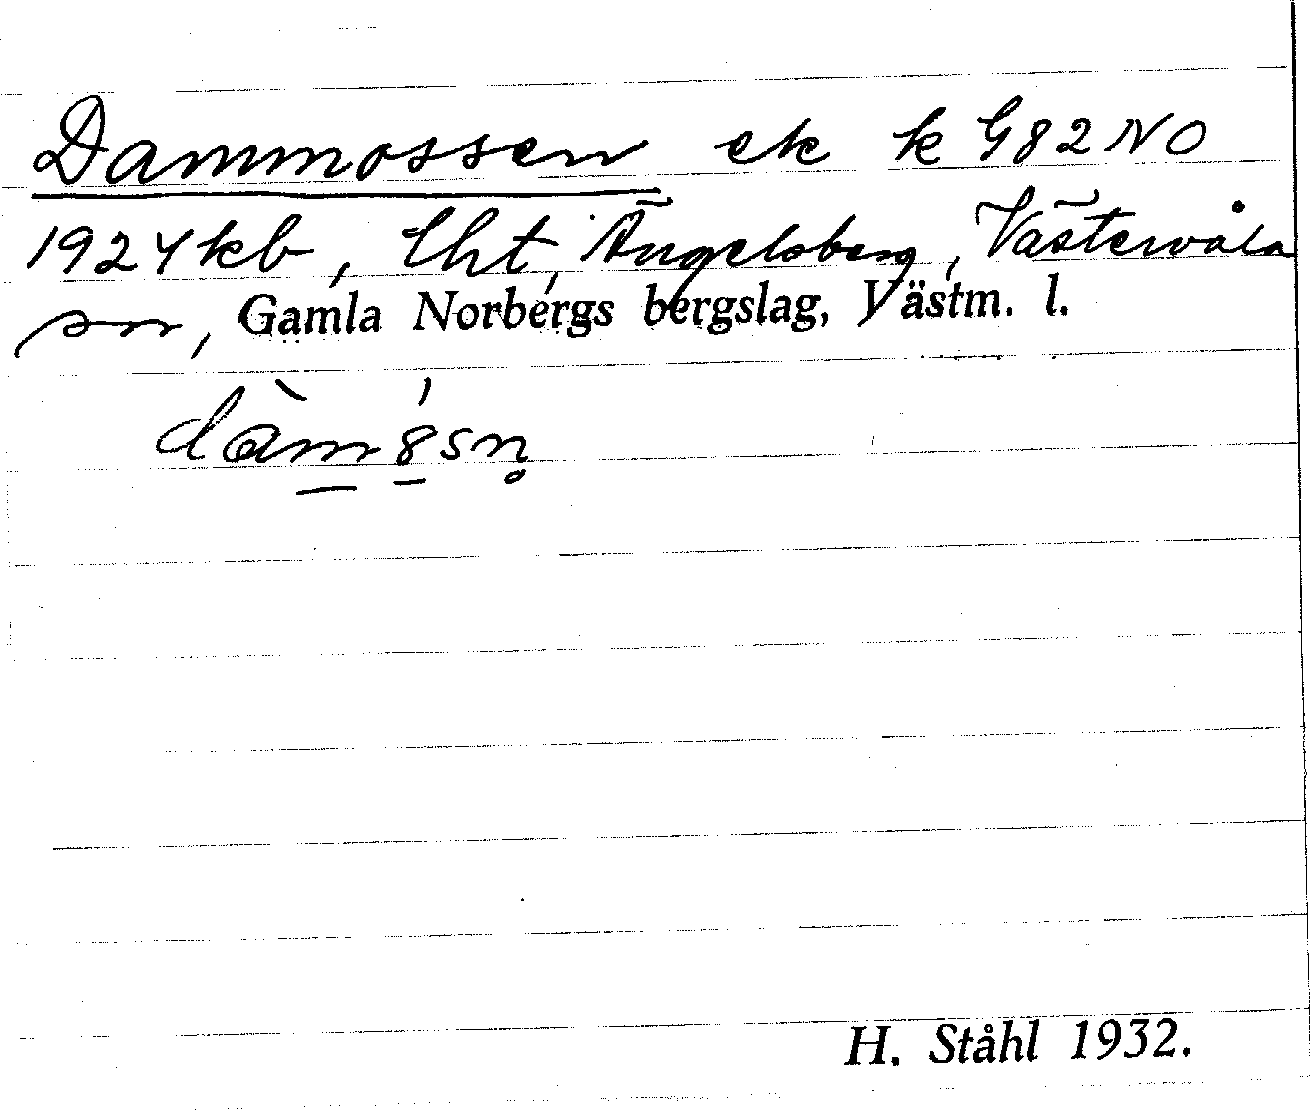 Dammossen ek k G82NO
1924 kb, lht, Ängelsberg, Västervåla
sn, Gamla Norbergs bergslag, Västm. l.
H. Ståhl 1932.